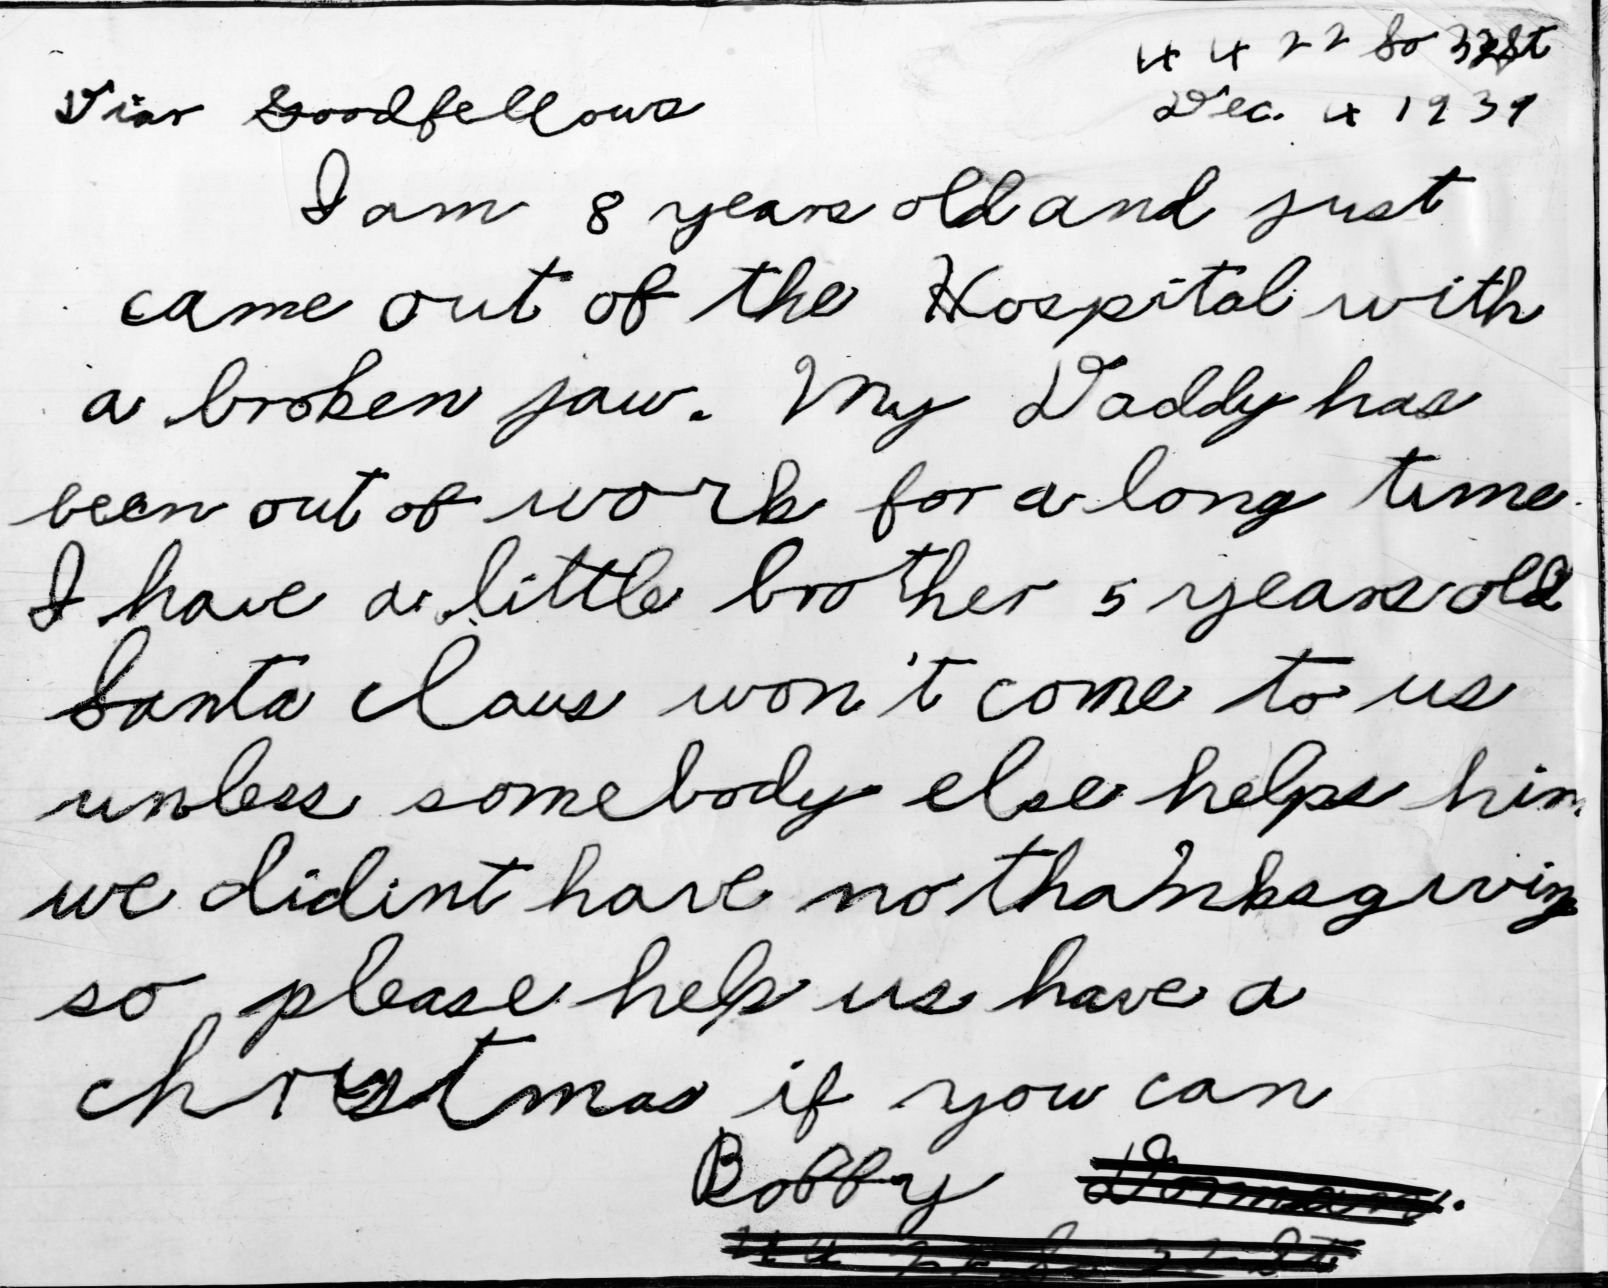 4422 So 32 St
Dec. 4 1939
Dear Goodfellows
I am 8 years old and just
came out of the Hospital with
a broken jaw. My Daddy has
been out of work for a long time.
I have a little brother 5 years old
Santa Claus won't come to us
unless somebody else helps him
we didint have no thanksgiving
so please help us have a
christmas if you can
Bobby